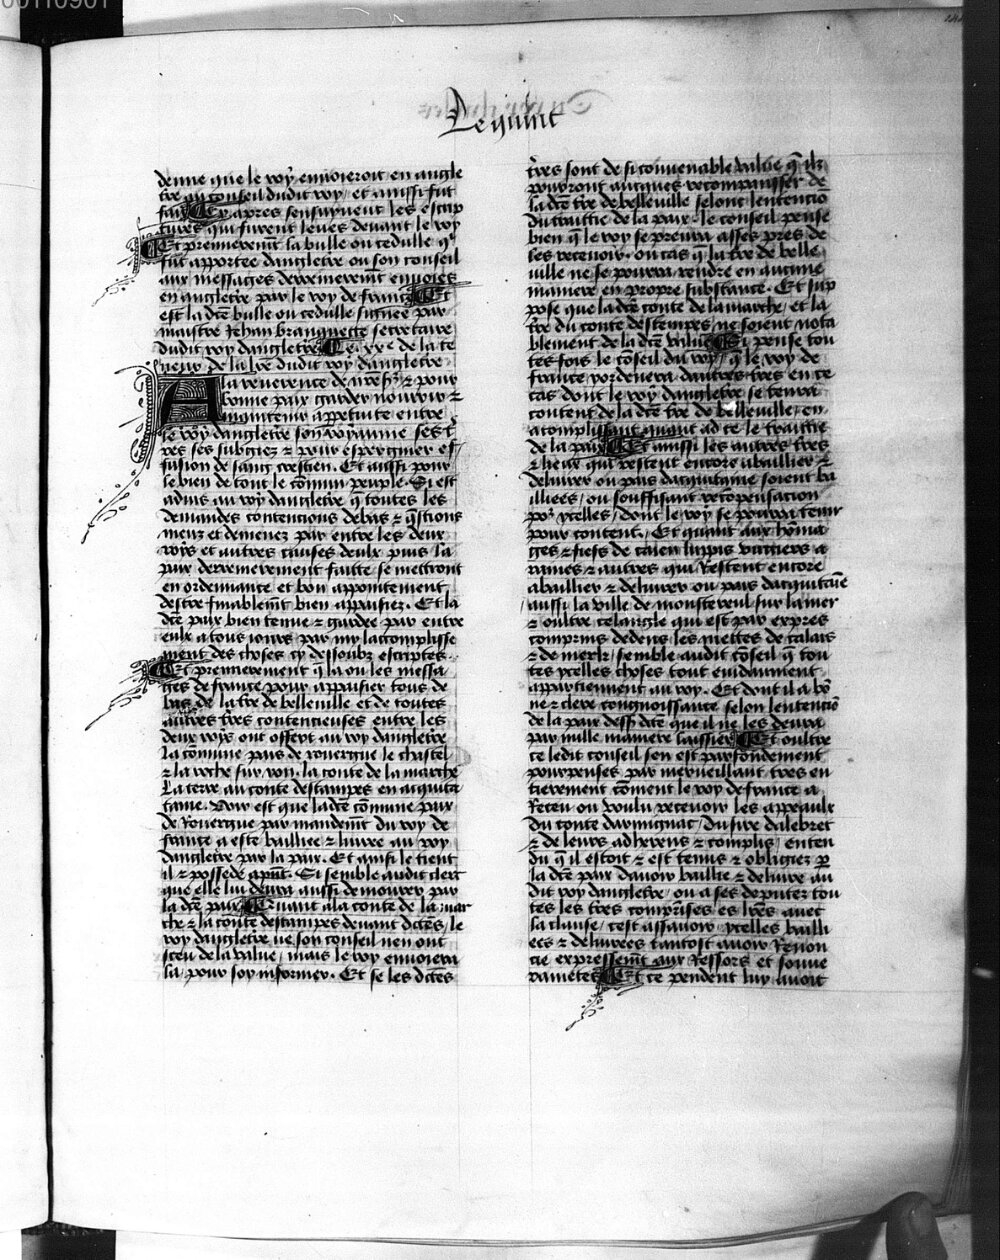 00110901
Le quint
denne que le roy enuoieroit en angle
tre au conseil dudit roy / et aussi fut
fait Cy apres sensuyuent les escrip
tures qui furent leues deuant le roy
Et premierement la bulle ou cedulle q̃
fut apportee dangletr̃e ou son conseil
aux messages derrenierement enuoies
en angletr̃e par le roy de france Et
est la dc̃e bulle ou cedulle signee par
maistre Jehan branquette secretaire
dudit roy dangletr̃e
neur de la lr̃e dudit roy dangletr̃e
A la reuerence de nr̃e s̃ ⁊ pour
bonne paix garder nourrir ⁊
maintenir a perpetuite entre
le roy dangletr̃e son royaume ses t̃
res ses subgiez ⁊ pour espergnier ef
fusion de sang crestien. Et aussi pour
le bien de tout le cõmun peuple. Si est
aduis au roy dangletr̃e q̃ toutes les
demandes contencions debas ⁊ q̃stions
meuz et demenez par entre les deux
roys et autres causes deulx puis la
paix derrenierement faitte se mettront
en ordennance et bon appointement
destre finablem̃t bien appaisiez. Et la
dc̃e paix bien tenue ⁊ gardee par entre
eulx a tous iours par my lacomplisse
ment des choses cy dessoubz escriptes
Et premierement q̃ la ou les messa
ges de france pour appaisier tous de
bas de la tr̃e de belleuille et de toutes
autres tr̃es contencieuses entre les
deux roys ont offert au roy dangletr̃e
la cõmune paix de rouergue le chastel
⁊ la roche sur yon. la conte de la marche
La terre au conte destampes en acquita
tame. Voir est que la dc̃e cõmune paix
de Rouergue par mandem̃t du roy de
france a este bailliee ⁊ liuree au roy
dangletr̃e par la paix. Et ainsi le tient
il ⁊ possede a pñt. Si semble audit clerc
que elle lui deura aussi demourer par
la dc̃e paix Quant a la conte de la mar
che ⁊ la conte destampes deuant dc̃tes / le
roy dangletr̃e ne son conseil nen ont
sceu de la value / mais le roy enuoiera
la pour soy informer. Et se les dc̃tes
tr̃es sont de si conuenable value q̃ ilz
pourront aucques recompansser de
la dc̃e tr̃e de belleuille selont lentencio
du traittie de la paix. le conseil pense
bien q̃ le roy se prenra asses pres de
les receuoir. ou cas q̃ la tr̃e de belle
uille ne se pourra rendre en aucune
maniere en propre substance. Et sup
pose que la dc̃e conte de la marche / et la
tr̃e du conte destempes ne soient nota
blement de la dc̃e value Si pense tou
tes fois le cõseil du roy / q̃ le roy de
france y ordenera dautres tr̃es en ce
cas dont le roy dangletr̃e se tenra
content de la dc̃e tr̃e de belleuille / en
acomplissant quant ad ce le traittie
de la paix Et aussi les autres tr̃es
⁊ lieux qui restent encore abaillier ⁊
deliurer ou pais dacquitaine soient ba
illiees / ou souffisant recõpensacion
por ycelles / dont le roy se pourra tenir
pour content. Et quant aux hõma
ges ⁊ fiefs de
rames ⁊ autres qui Restent encore
abaillier ⁊ deliurer ou pais dacquitaĩe
aussi la ville de monstereul sur la mer
⁊ oultre cel angle qui est par expres
comprins dedens les mettes de calais
⁊ de merk / semble audit cõseil q̃ tou
tes ycelles choses tout euidanment
appartiennent au roy. Et dont il a bõ
ne ⁊ clere congnoissance selon lentencio
de la paix dess̃ dc̃te que il ne les deura
par nulle maniere laissier Et oultre
ce ledit conseil sen est parfondement
pourpenses par merueillant tres en
tierement cõment le roy de france a
Receu ou voulu receuoir les appeaulx
du conte darmignac / du sire dalebret
⁊ de leurs adherens ⁊ complis / enten
du q̃ il estoit ⁊ est tenus ⁊ obligiez p̃
la dc̃e paix dauoir baillie ⁊ deliure au
dit roy dangletr̃e / ou a ses deputez tou
tes les tr̃es cõmprises es lr̃es auec
la clause / cest assauoir / ycelles bailli
ees ⁊ deliurees tantost auoir Renon
cie expressem̃t aux Ressors et souue
rainetes Et ce pendent luy auoit